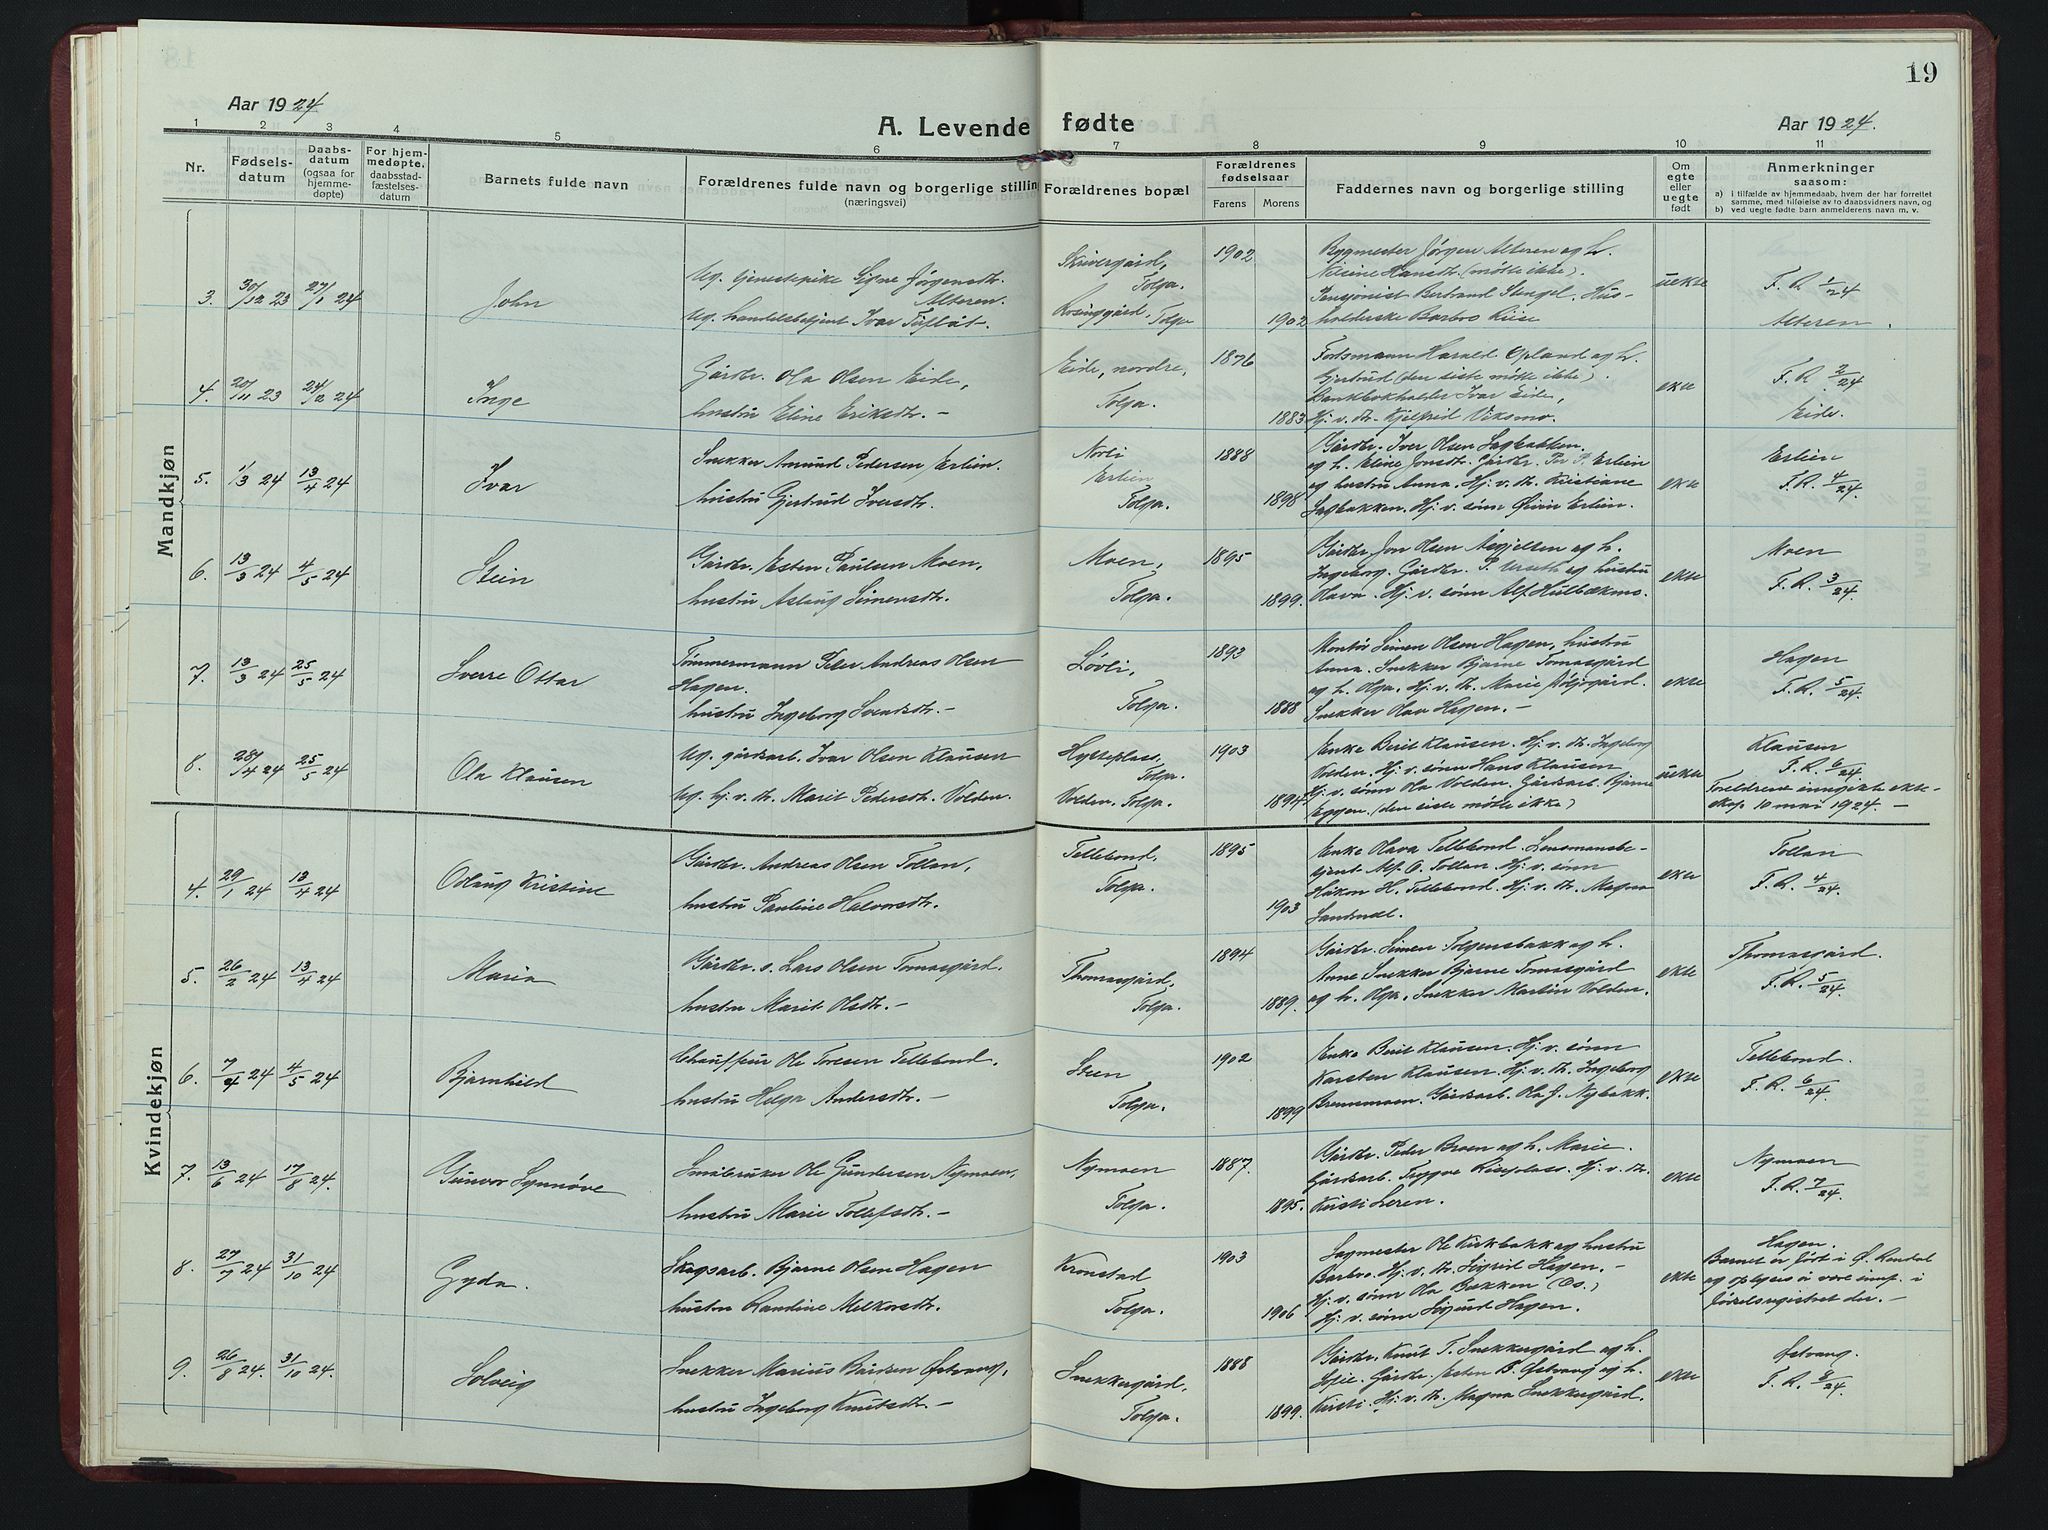 19
Aar 1924
A. Levende fødte
Aar 1924.
1 2 3 4 5 6 7 8 9 10 11
Nr.
Fødsels-
datum
Daabs-
datum
(ogsaa for
hjemme-
døpte)
For hjem-
medøpte,
daabsstad-
fæstelses-
datum
Barnets fulde navn
Forældrenes fulde navn og borgerlige stilling
(næringsvei)
Forældrenes bopæl
Forældrenes
fødselsaar
Farens Morens
Faddernes navn og borgerlige stilling
Om
egte
eller
uegte
født
Anmerkninger
saasom:
a) i tilfælde av hjemmedaab, hvem der har forrettet
samme, med tilføielse av to daabsvidners navn, og
b) ved uegte fødte barn anmelderens navn m. v.
Mandkjøn
3. 30/12 23 27/1 24 John
Ug. tjenestepike Signe Jørgensdt.
Alteren.
Ug. handelsbetjent Ivar Tufløt.
Skrivergård,
Tolga.
Rosinggård, Tolga
1902
1902
Bygmester Jørgen Alteren og h.
Nilsine Hansdt. (møtte ikke).
Pensjonist Bertrand Stengel. Hus-
holderske Barbro Riise
uekte
F. R. 1/24
Alteren.
4. 20/11 23 24/2 24 Inge
Gårdbr. Ola Olsen Eide,
hustru Eline Eriksdt. —
Eide, nordre,
Tolga.
1876
1883
Forstmann Harald Opland og h.
Gjertrud (den siste møtte ikke).
Bankbokholder Ivar Eide,
Hj. v. dt. Kjelfrid Viksmo.
ekte
F. R. 2/24
Eide.
5. 1/3 24 13/4 24 Ivar
Snekker Amund Pedersen Erlien.
hustru Gjertrud Iversdt.
Norli
Erlien
Tolga.
1888
1898
Gårdbr. Iver Olsen Sagbakken
og h. Eline Jonsdt. Gårdbr. Per P. Erlien
og hustru Anna. Hj. v. dt. Kristiane
Sagbakken. Hj. v. sønn Øivin Erlien.
ekte
Erlien
F. R. 4/24.
6. 13/3 24 4/5 24 Stein
Gårdbr. Esten Paulsen Moen,
hustru Aslaug Simensdt.
Moen,
Tolga.
1895
1899.
Gårdbr. Jon Olsen Aspjelten og h.
Ingeborg. Gårdbr. P. Urseth og hustru
Olava. Hj. v. sønn Alf Hulbækmo.
ekte
Moen
F. R. 3/24.
7. 13/3 24 25/5 24 Sverre Ottar
Tømmermann Peter Andreas Olsen
Hagen.
hustru Ingeborg Svendsdt. —
Løvli,
Tolga.
1893
1888
Montør Simen Olsen Hagen, hustru
Anna. Snekker Bjarne Tomasgård
og h. Olga. Hj. v. dt. Marie
Snekker Olav Hagen. —
ekte
Hagen
F. R. 5/24.
8. 28/4 24 25/5 24 Ola Klausen
Ug. gårdsarb. Ivar Olsen Klausen
Ug. hj. v. dt. Marit Pedersdt. Volden.
Hytteplass,
Tolga.
Volden. Tolga.
1903
1894
Enke Berit Klausen. Hj. v. dt. Ingeborg
Volden. Hj. v. sønn Hans Klausen
Hj. v. sønn Ola Volden. Gårdsarb. Bjarne
Eggen. (den siste møtte ikke)
uekte
Klausen
F. R. 6/24.
Foreldrene inngikk ekte-
skap 10 mai 1924. —
Kvindekjøn
4. 29/1 24 13/4 24 Odlaug Kristine
Gårdbr. Andreas Olsen Tollan,
hustru Pauline Halvorsdt.
Tellebond,
Tolga.
1895
1903
Enke Olava Tellebond. Lensmansbe-
tjent Alf O. Tollan. Hj. v. sønn
Håkon H. Tellebond. Hj. v. dt. Magna
Sandnæl.
ekte
Tollan
F. R. 4/24.
5. 26/2 24 13/4 24 Maria
Gårdbr. s. Lars Olsen Tomasgård.
hustru Marit Olsdt. —
Thomasgård,
Tolga.
1894
1889.
Gårdbr. Simen Tolgensbakk og h.
Anne Snekker Bjarne Tomasgård
og h. Olga. Snekker Martin Volden.
ekte
Thomasgård.
F. R. 5/24.
6. 7/4 24 4/5 24 Bjarnhild
Chauffeur Ole Toresen Tellebond.
hustru Helga Andersdt. —
Steen
Tolga.
1902
1899
Enke Berit Klausen. Hj. v. sønn
Karsten Klausen. Hj. v. dt. Ingeborg
Brennmoen. Gårdsarb. Ola J. Nybakk.
ekte
Tellebond.
F. R. 6/24.
7. 13/6 24 17/8 24. Gunvor Synnøve
Småbruker Ole Gundersen Nymoen,
hustru Marie Tollefsdt. —
Nymoen
Tolga.
1887
1895.
Gårdbr. Peder Broen og h. Marie.
Gårdsarb. Trygve Riseplass. Hj. v. dt.
Kirsti Leren.
ekte
Nymoen
F. R. 7/24.
8. 27/7 24 31/10 24 Gyda.
Skogsarb. Bjarne Olsen Hagen
hustru Randine Melkorsdt.
Kronstad
Tolga.
1903
1906
Sagmester Ole Kirkbakk og hustru
Barbro. Hj. v. dt. Sigrid Hagen. —
Hj. v. sønn Ola Bakken (Os.)
Hj. v. sønn Sigurd Hagen.
ekte
Hagen.
Barnet er født i Ø. Rendal
og oplyses å være innf. i
fødselsregistret der. —
9. 26/8 24. 31/10 24. Solveig
Snekker Marius Bårdsen Østvang,
hustru Ingeborg Knutsdt. —
Snekkergård,
Tolga.
1888
1899.
Gårdbr. Knut T. Snekkergård og h.
Sofie. Gårdbr. Esten B. Østvang og h.
Kirsti. Hj. v. dt. Magna Snekkergård.
ekte
Østvang.
F. R. 8/24.